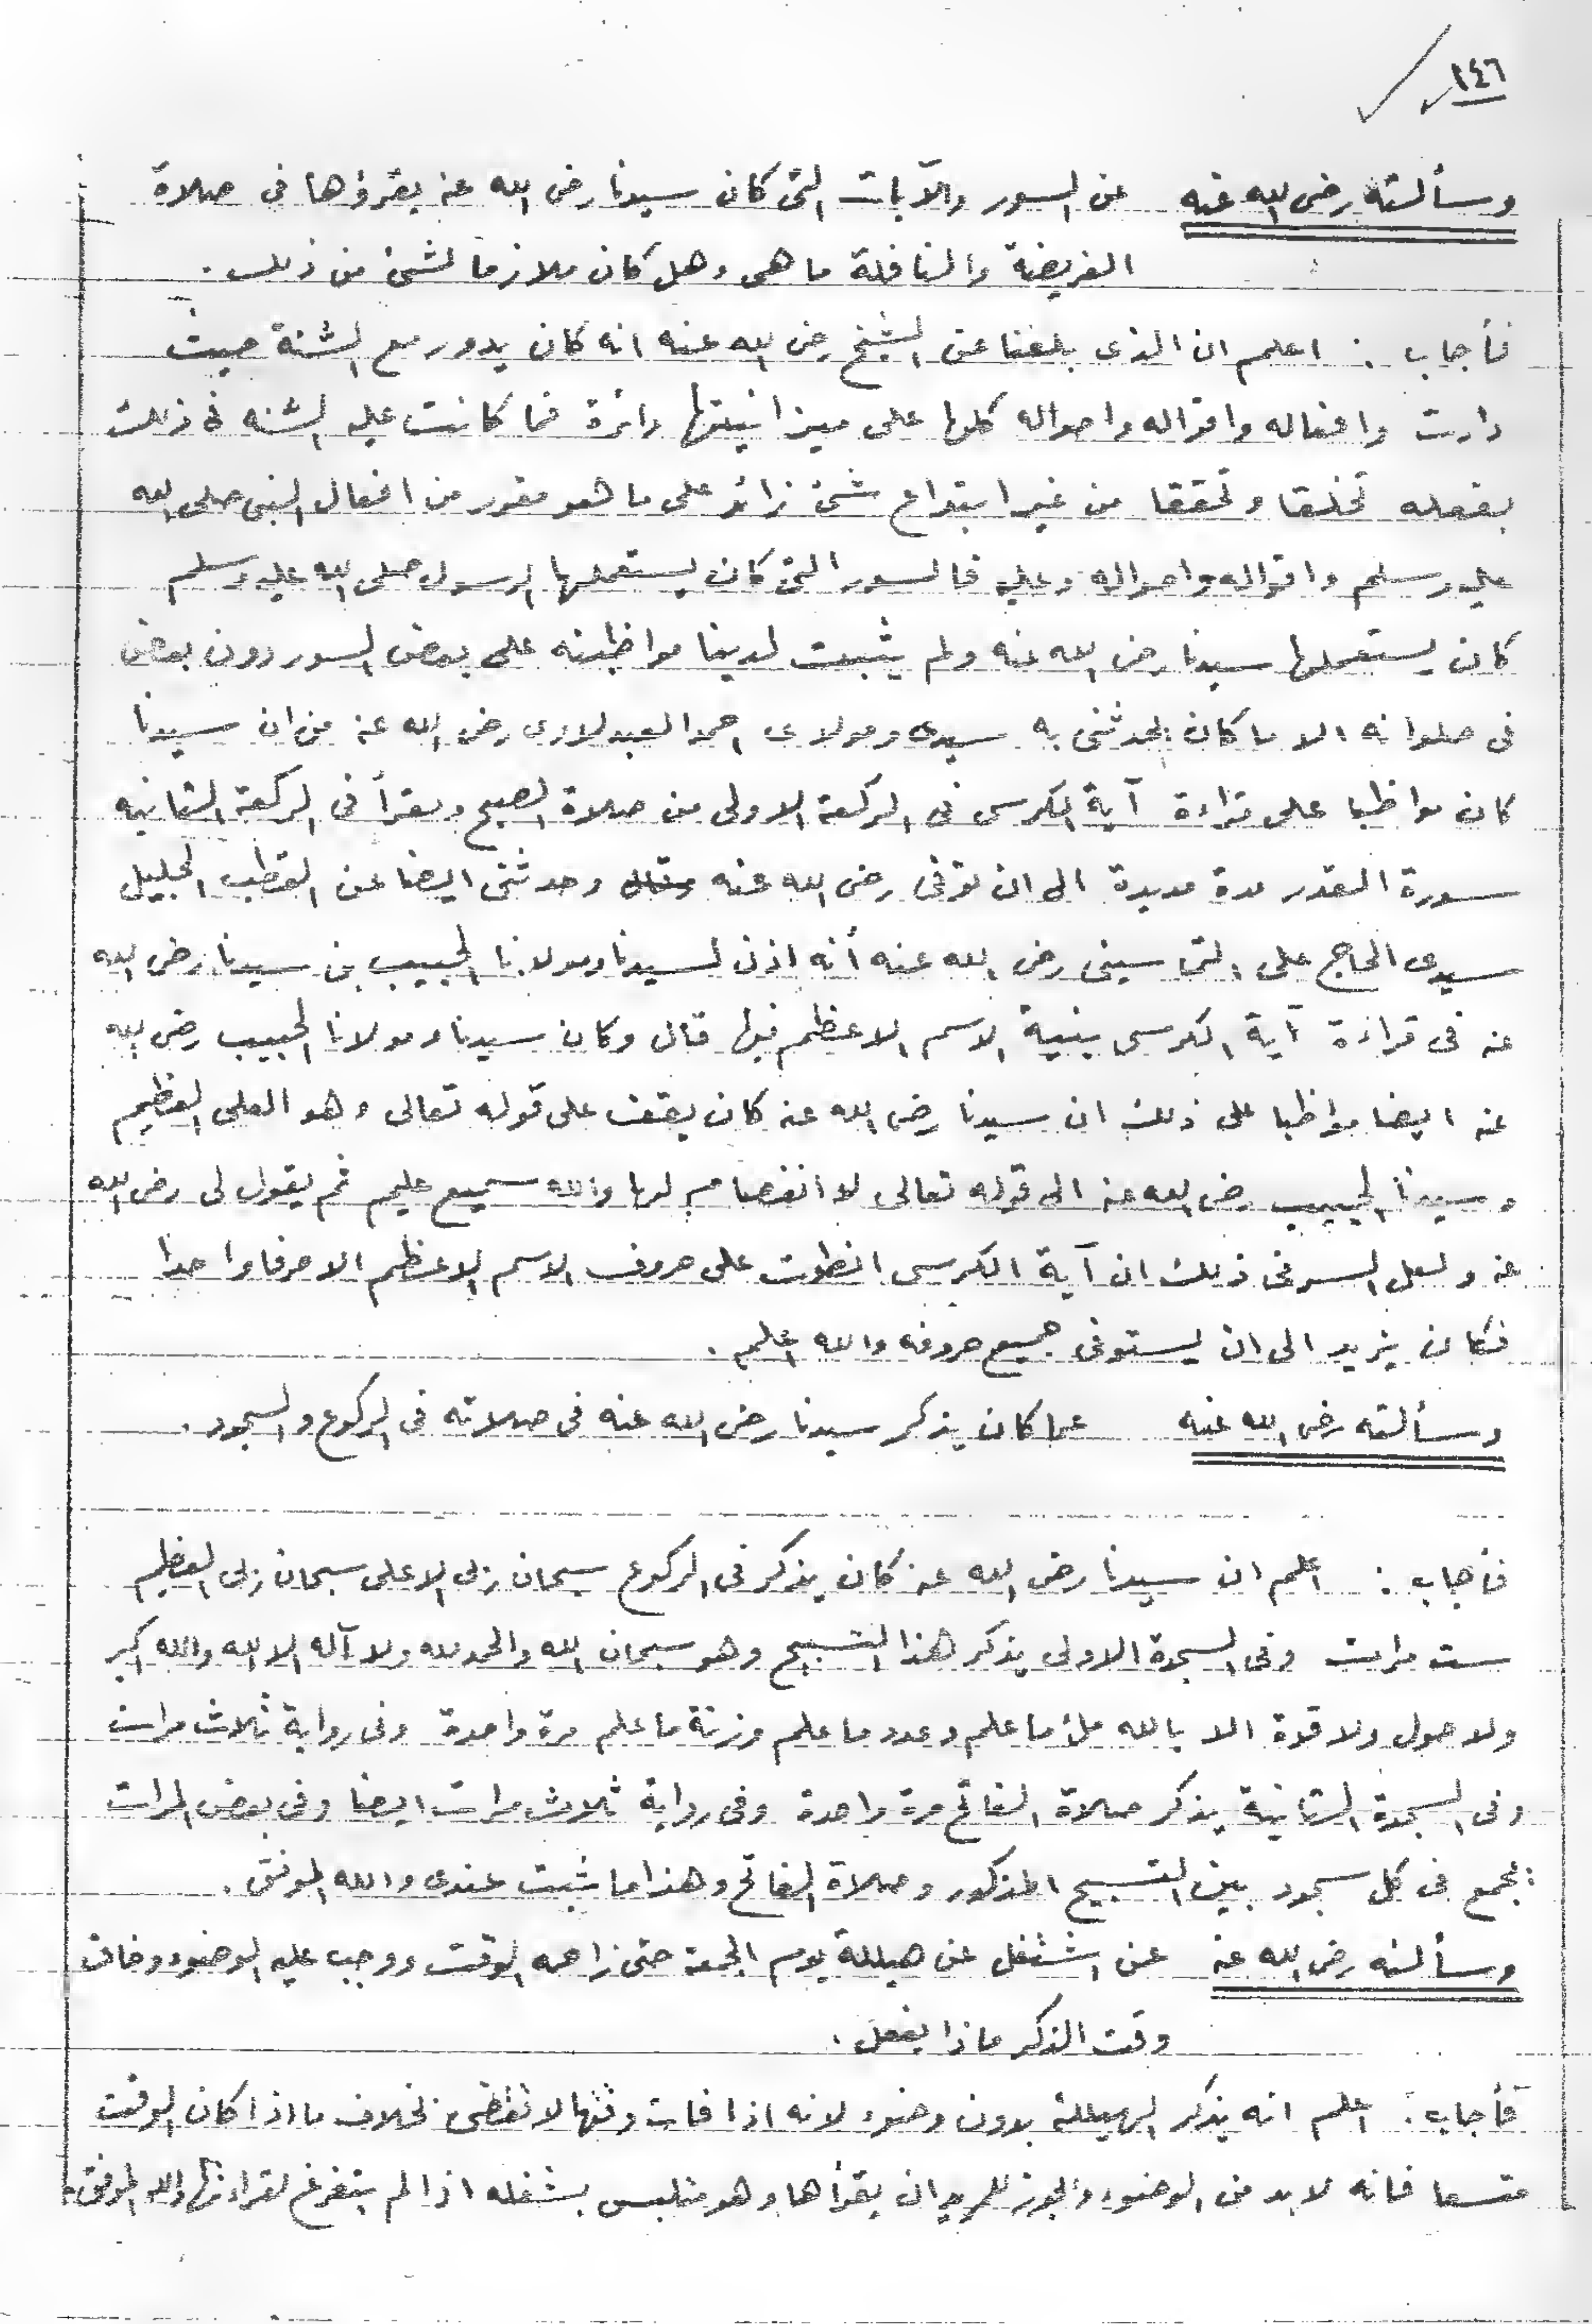 ٢٤٦
وسألته رضى الله عنه عن السور والآيات التى كان سيدنا رضى الله عنه يقرؤها فى صلاة
الفريضة والنافلة ما هى وهل كان ملازما لشئ من ذلك .
فأجاب : اعلم ان الذى بلغنا عن الشيخ رضى الله عنه انه كان يدور مع السنة حيث
دارت وافعاله واقواله واحواله كلها على ميزانيتها دائرة فما كانت عليه السنه فى ذلك
يفعله تخلقا وتحققا من غير ابتداع شئ زائد على ما هو مقرر من افعال النبى صلى الله
عليه وسلم واقواله واحواله وعليه فالسور التى كان يستعملها الرسول صلى الله عليه وسلم
كان يستعملها سيدنا رضى الله عنه ولم يثبت لدينا مواظبته على بعض السور دون بعض
فى صلواته الا ما كان يحدثنى به سيدى ومولاى احمد العبدلاوى رضى الله عنه من ان سيدنا
كان مواظبا على قراءة آية الكرسى فى الركعة الاولى من صلاة الصبح ويقرأ فى الركعة الثانيه
سورة القدر مدة مديدة الى ان توفى رضى الله عنه وحدثنى ايضا عن القطب الجليل
سيدى الحاج على التماسينى رضى الله عنه أنه اذن لسيدنا ومولانا الحبيب بن سيدنا رضى الله
عنه فى قراءة آية الكرسى بنية الاسم الاعظم فيها قال وكان سيدنا ومولانا الحبيب رضى الله
عنه ايضا مواظبا على ذلك ان سيدنا رضى الله عنه كان يقف على قوله تعالى وهو العلى العظيم
وسيدنا الحبيب رضى الله عنه الى قوله تعالى لا انفصام لها والله سميع عليم ثم يقول لى رضى الله
عنه ولعل السر فى ذلك ان آية الكرسى انطوت على حروف الاسم الاعظم الا حرفا واحدا
فكان يزيد الى ان يستوفى جميع حروفه والله اعلم .
وسألته رضى الله عنه عما كان يذكر سيدنا رضى الله عنه فى صلاته فى الركوع والسجود .
فأجاب : اعلم ان سيدنا رضى الله عنه كان يذكر فى الركوع سبحان ربى الاعلى سبحان ربى العظيم
ست مرات وفى السجدة الاولى يذكر هذا التسبيح وهو سبحان الله والحمد لله ولا آله الا الله والله اكبر
ولا حول ولا قوة الا بالله ملئ ما علم وعدد ما علم وزنة ما علم مرة واحدة وفى رواية ثلاث مرات
وفى السجدة الثانية يذكر صلاة الفاتح مرة واحدة وفى رواية ثلاث مرات ايضا وفى بعض المرات
يجمع فى كل سجود بين التسبيح المذكور وصلاة الفاتح وهذا ما ثبت عندى والله الموفق .
وسألته رضى الله عنه عن اشتغل عن هيللة يوم الجمعة حتى زاحمه الوقت ووجب عليه الوضوء وخاف
وقت الذكر ماذا يفعل .
فأجاب : اعلم انه يذكر الهيللة بدون وضوء لانه اذا فات وقتها لا تقضى بخلاف ما اذا كان الوقت
متسعا فانه لا بد من الوضوء ويجوز للمريد ان يقرأها وهو متلبس بشغله اذا لم يتفرغ لقراءتها والله الموفق